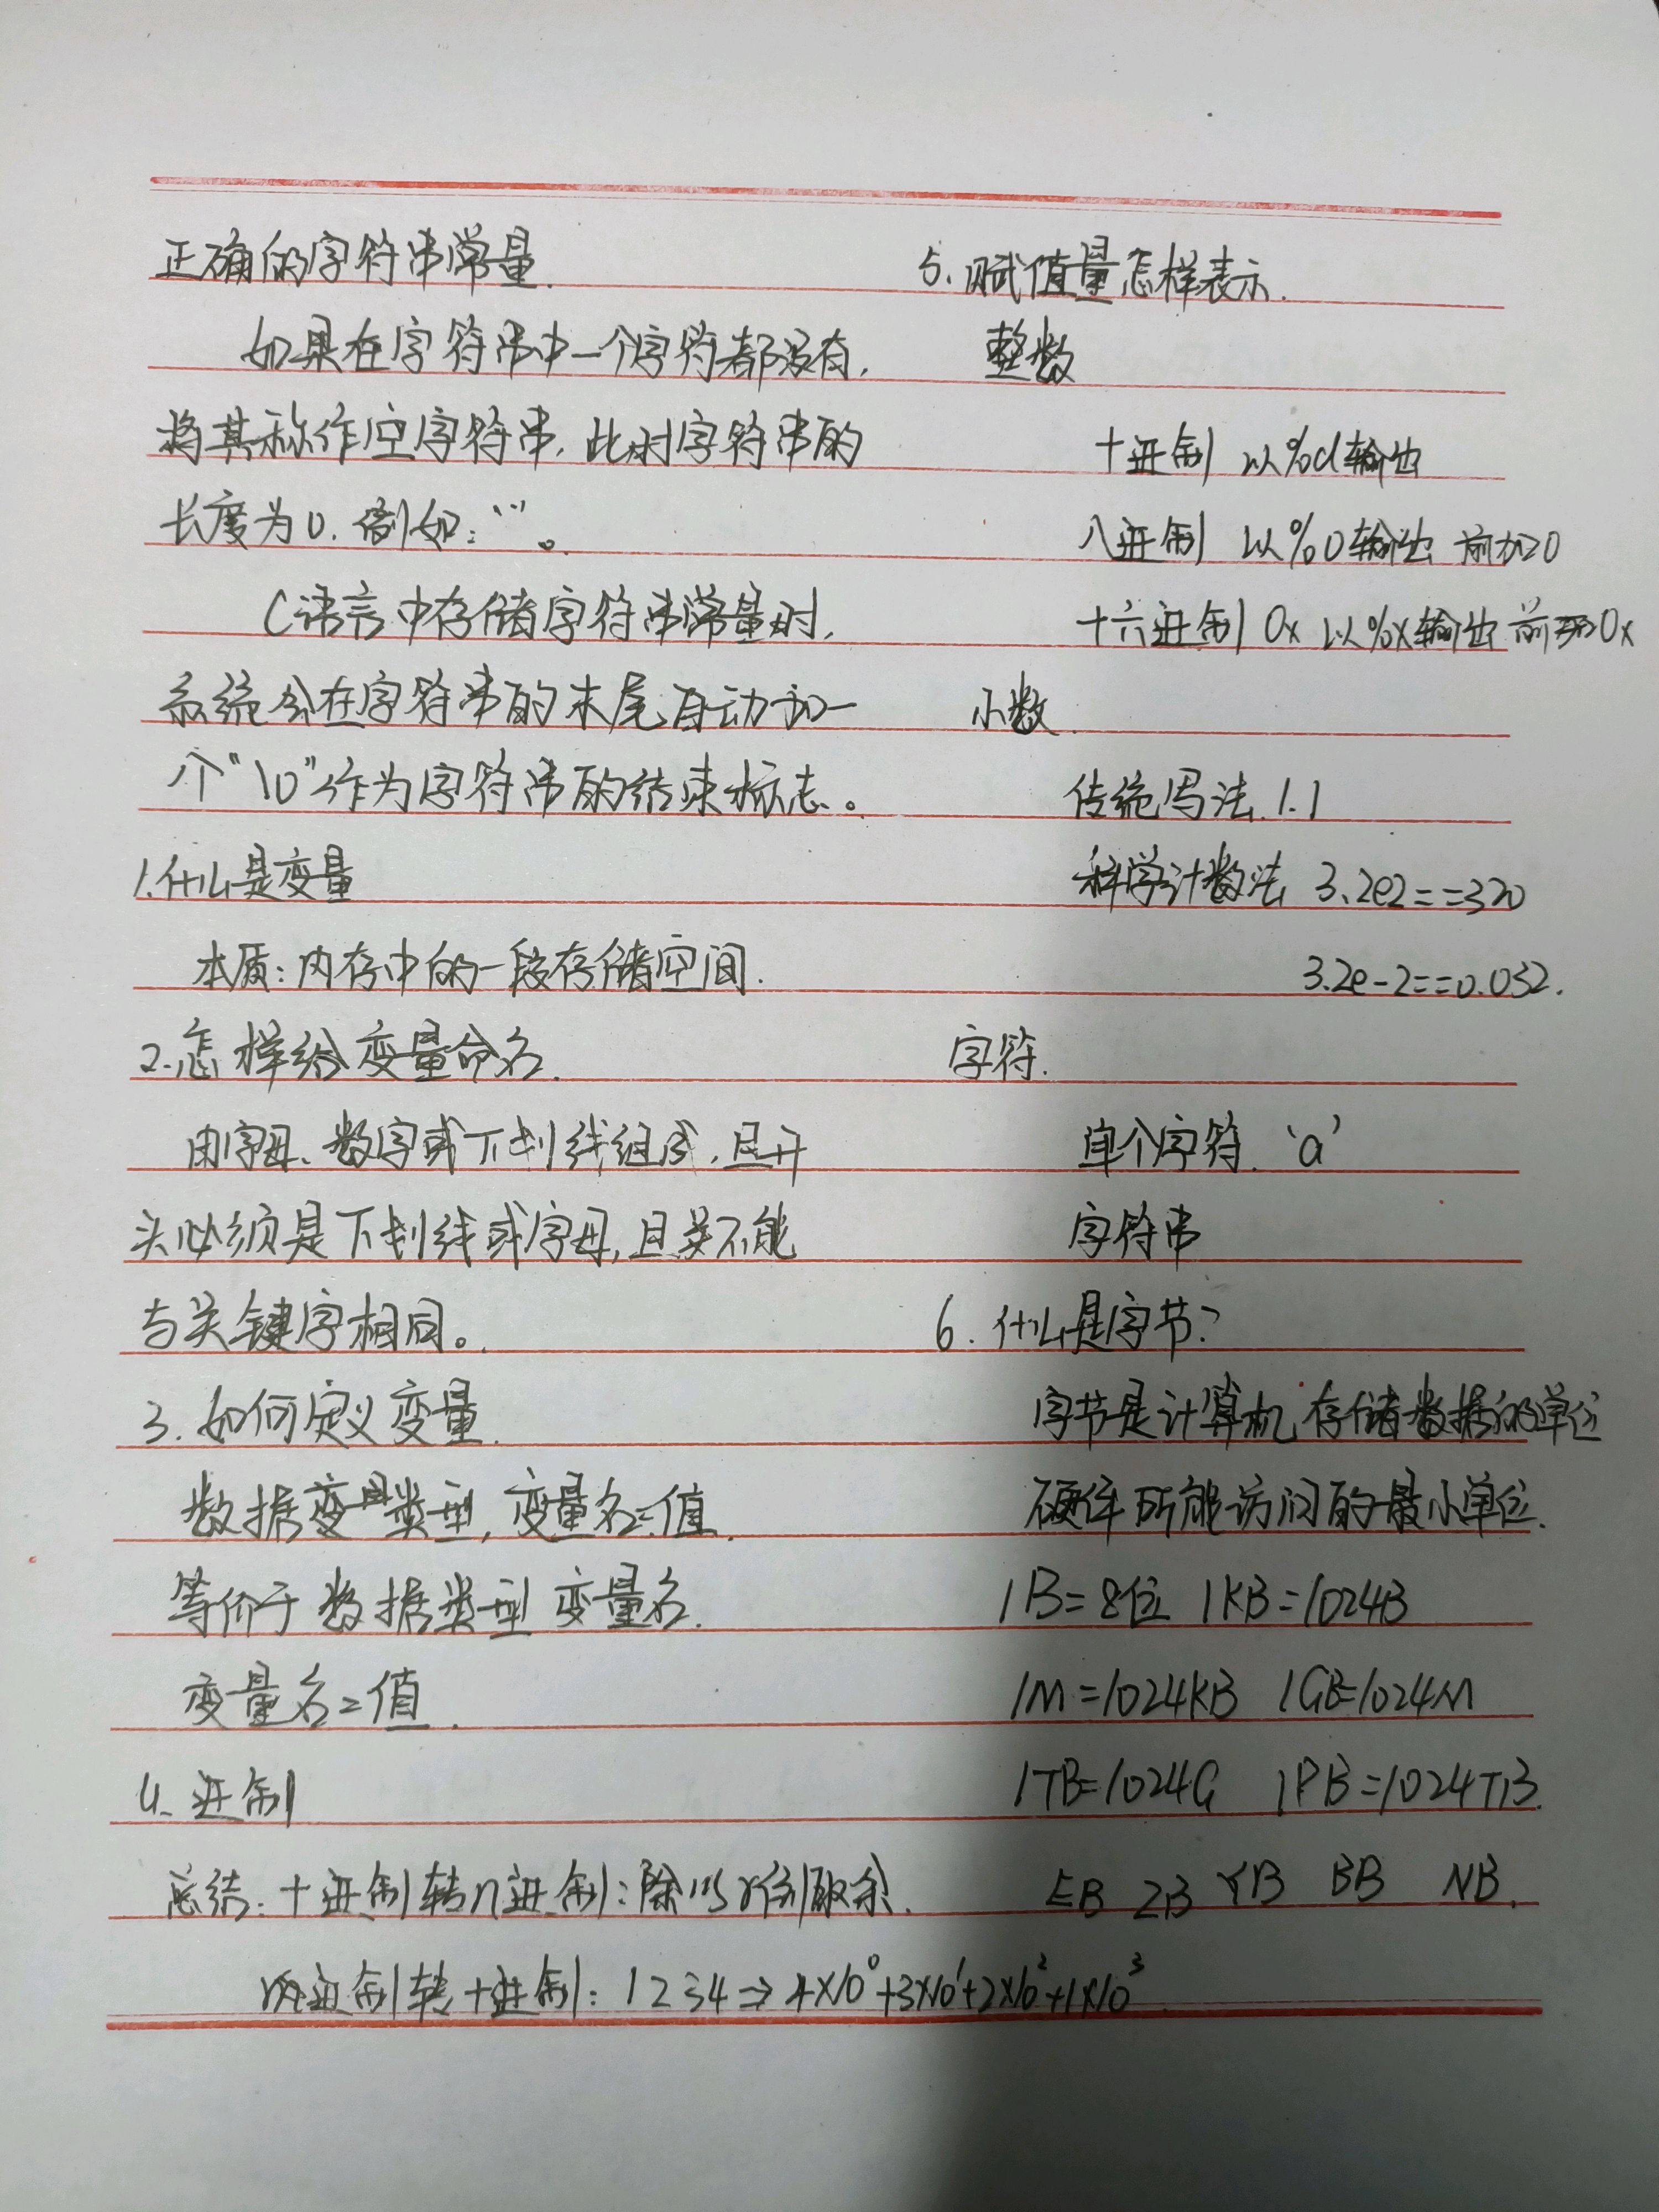 正确的字符串常量.
如果在字符串中一个字符都没有,
将其称作空字符串,此时字符串的
长度为0.例如:“”。
C语言中存储字符串常量时,
系统会在字符串的末尾自动加一
个"\0"作为字符串的结束标志。
1.什么是变量
本质:内存中的一段存储空间.
2.怎样给变量命名.
由字母、数字或下划线组成,且开
头必须是下划线或字母,且类不能
与关键字相同。
3.如何定义变量.
数据变量类型,变量名=值.
等价于 数据类型 变量名.
变量名=值.
4.进制
总结:十进制转n进制:除以r倒取余.
进制转十进制:1234⇒4×10⁰+3×10¹+2×10²+1×10³
5.赋值量怎样表示.
整数
十进制 以%d输出
八进制 以%0输出 前加0
十六进制 0x 以%x输出 前加0x
小数.
传统写法.1.1
科学计数法 3.2e2==320
3.2e-2==0.032.
字符.
单个字符.‘a’
字符串
6.什么是字节?
字节是计算机存储数据的单位
硬件所能访问的最小单位.
1B=8位 1KB=1024B
1M=1024KB 1GB=1024M
1TB=1024G 1PB=1024TB.
EB ZB YB BB NB.